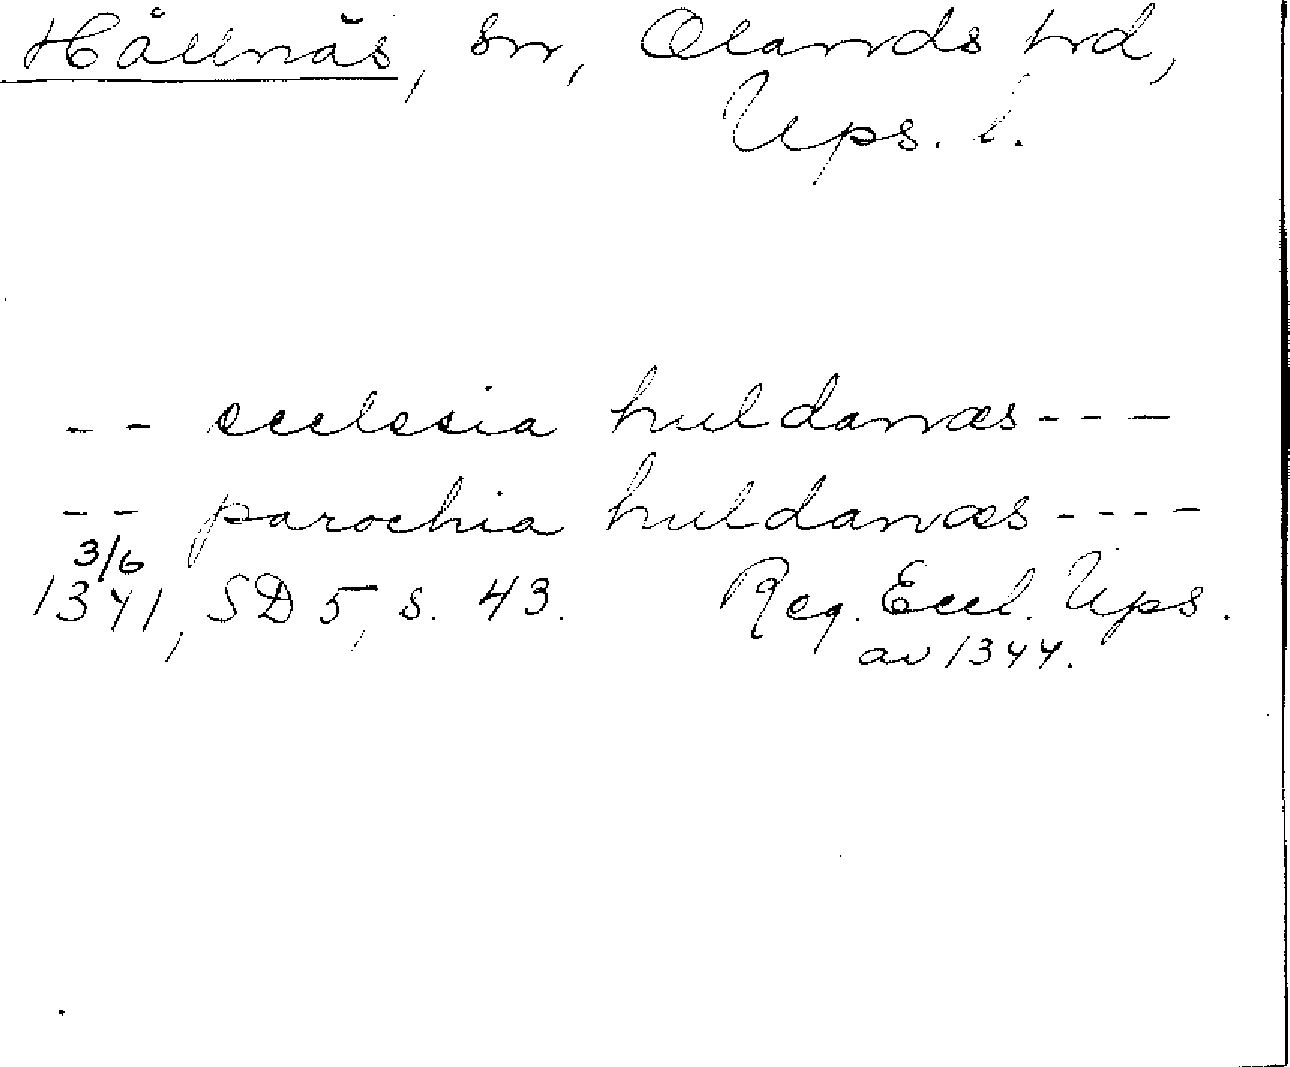 Hållnäs, sn, Olands hd,
Ups. l.
-- ecclesia huldanæs---
-- parochia huldanæs----
3/6
1341, SD 5, s. 43. Reg. Eccl. Ups.
av 1344.